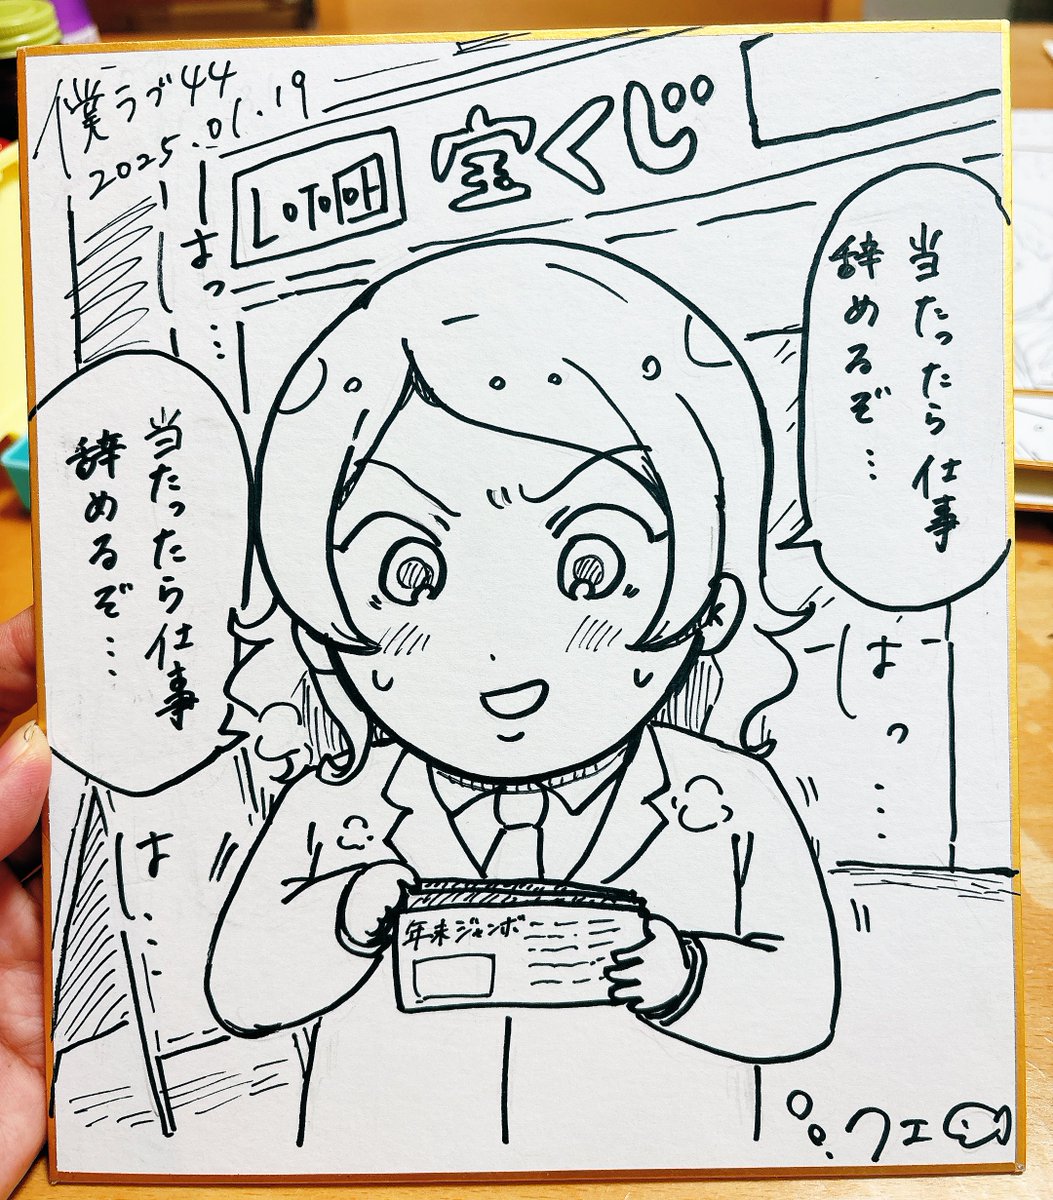 僕ラブ44
2025.01.19
LOTO
宝くじ
当たったら仕事
辞めるぞ…
はっ…
当たったら仕事
辞めるぞ…
はっ…
は…
年末ジャンボ
フェ